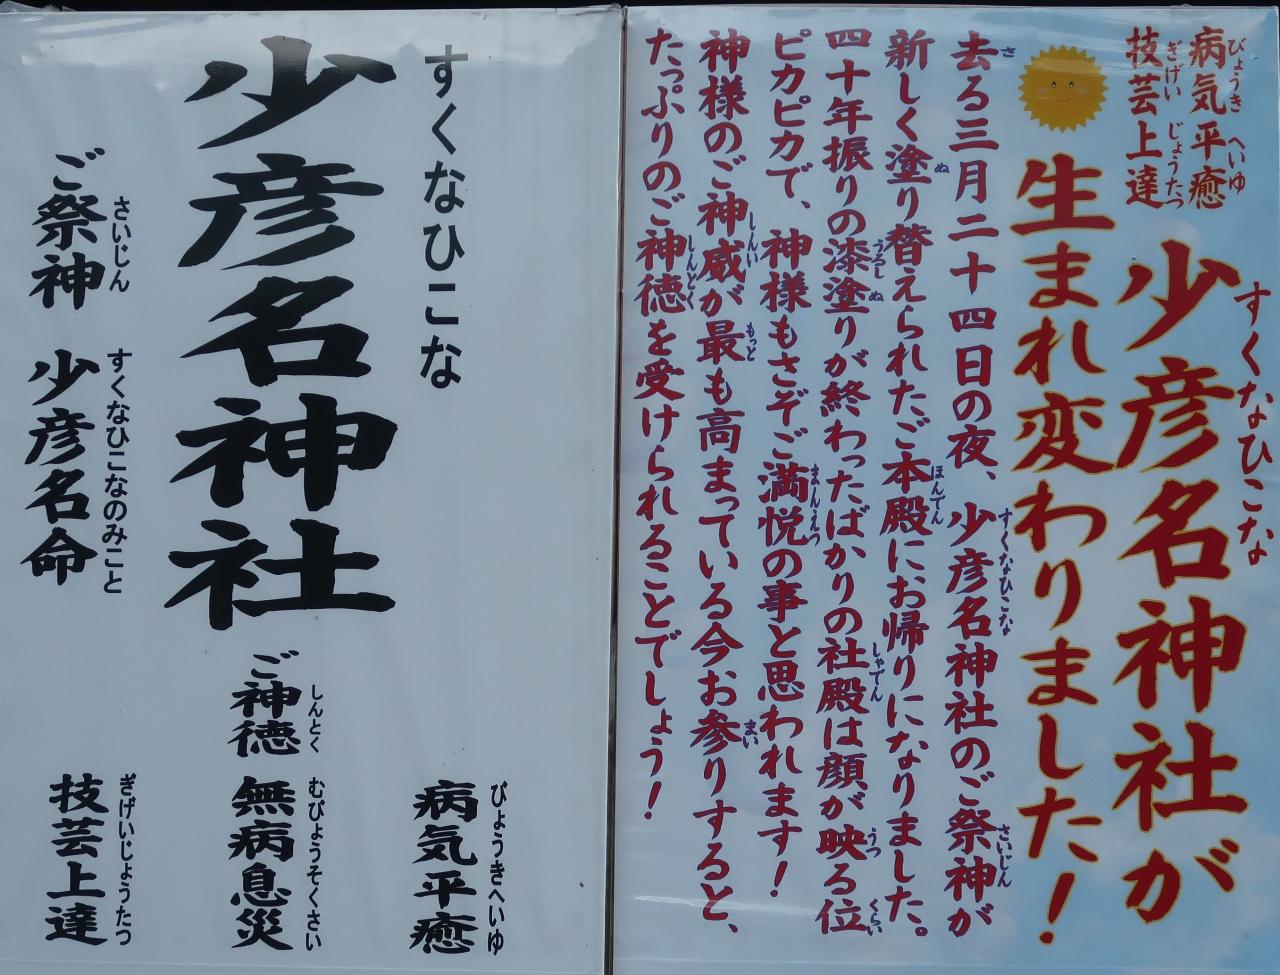 病気平癒
びょうき へいゆ
技芸上達
ぎげい じょうたつ
少彦名神社が
すくなひこな
生まれ変わりました！
去る三月二十四日の夜、少彦名神社のご祭神が
さ
すくなひこな
さいじん
新しく塗り替えられたご本殿にお帰りになりました。
ぬ
ほんでん
四十年振りの漆塗りが終わったばかりの社殿は顔が映る位
うるし ぬ
しゃでん
うつ
くらい
ピカピカで、神様もさぞご満悦の事と思われます！
まんえつ
神様のご神威が最も高まっている今お参りすると、
しんい
もっと
まい
たっぷりのご神徳を受けられることでしょう！
しんとく
すくなひこな
少彦名神社
ご祭神 少彦名命
さいじん
すくなひこなのみこと
ご神徳
しんとく
病気平癒
びょうきへいゆ
無病息災
むびょうそくさい
技芸上達
ぎげいじょうたつ